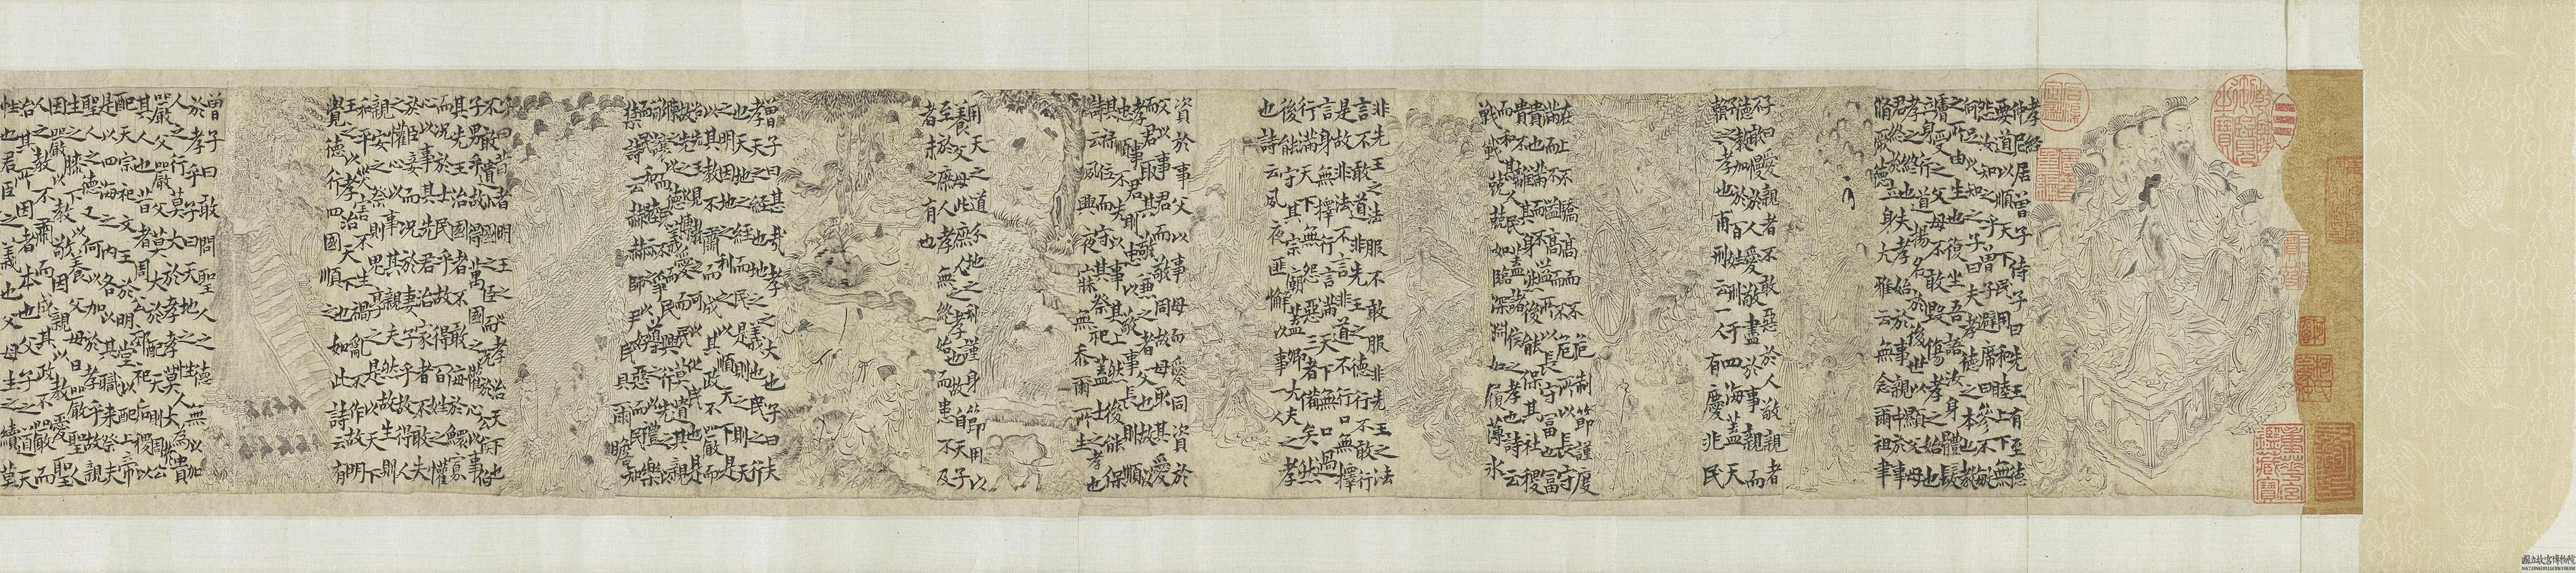 孝經
仲尼居曾子侍子曰先王有至德
要道以順天下民用和睦上下無
怨汝知之乎曾子避席曰參不敏
何足以知之子曰夫孝德之本也教
之所由生也復坐吾語汝身體髮
膚受之父母不敢毀傷孝之始也
立身行道揚名於後世以顯父母
孝之終也夫孝始於事親中於事
君終於立身大雅云無念爾祖聿
脩厥德
子曰愛親者不敢惡於人敬親者
不敢慢於人愛敬盡於事親而
德教加於百姓刑于四海蓋天
子之孝也甫刑云一人有慶兆民
賴之
在上不驕高而不危制節謹度
滿而不溢高而不危所以長守
貴也滿而不溢所以長守富也富
貴不離其身然後能保其社稷
而和其民人蓋諸侯之孝也詩云
戰戰兢兢如臨深淵如履薄冰
非先王之法服不敢服非先王之法
言不敢道非先王之德行不敢行
是故非法不言非道不行口無擇
言身無擇行言滿天下無口過
行滿天下無怨惡三者備矣然
後能守其宗廟蓋卿大夫之孝
也詩云夙夜匪懈以事一人
資於事父以事母而愛同資於
事父以事君而敬同故母取其愛
而君取其敬兼之者父也故以
孝事君則忠以敬事長則順
忠順不失以事其上然後能保
其祿位而守其祭祀蓋士之孝也
詩云夙興夜寐無忝爾所生
用天之道分地之利謹身節用以
養父母此庶人之孝也故自天子
至於庶人孝無終始而患不及
者未之有也
曾子曰甚哉孝之大也子曰夫
孝天之經也地之義也民之行
也天地之經而民是則之則天
之明因地之利以順天下是
以其教不肅而成其政不嚴而
治先王見教之可以化民也是
故先之以博愛而民莫遺其親
陳之以德義而民興行先之以
敬讓而民不爭導之以禮樂
而民和睦示之以好惡而民知
禁詩云赫赫師尹民具爾瞻
子曰昔者明王之以孝治天下也
不敢遺小國之臣而況於公侯伯
子男乎故得萬國之懽心以事
其先王治國者不敢侮於鰥寡
而況於士民乎故得百姓之懽
心以事其先君治家者不敢失
於臣妾而況於妻子乎故得人
之懽心以事其親夫然故生則
親安之祭則鬼享之是以天下
和平災害不生禍亂不作故明
王之以孝治天下也如此詩云有
覺德行四國順之
曾子曰敢問聖人之德無以加
於孝乎子曰天地之性人為貴
人之行莫大於孝孝莫大於
嚴父嚴父莫大於配天則周公
其人也昔者周公郊祀后稷以
配天宗祀文王於明堂以配上帝
是以四海之內各以其職來祭夫
聖人之德又何以加於孝乎故親
生之膝下以養父母日嚴聖人
因嚴以教敬因親以教愛聖
人之教不肅而成其政不嚴而
治其所因者本也父子之道天
性也君臣之義也父母生之續莫
國立故宮博物院